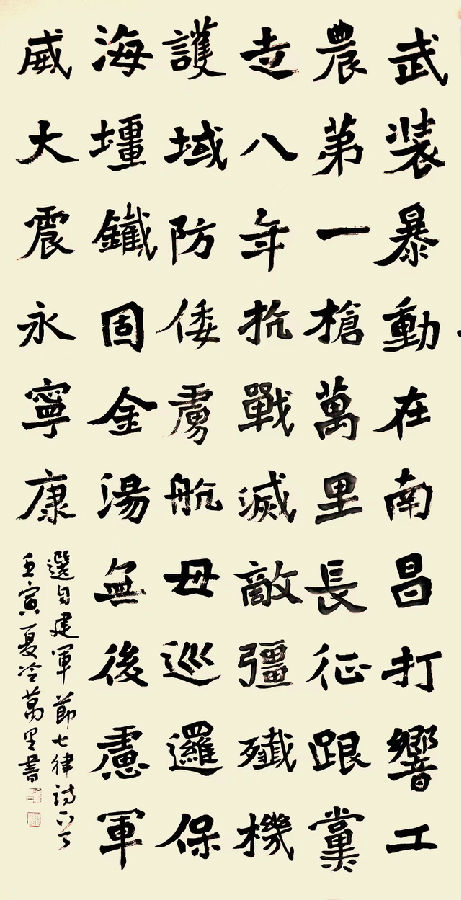 武裝暴動在南昌打響工
農第一槍萬里長征跟黨
走八年抗戰滅敵彊殲機
護域防倭虜航母巡邏保
海壃鐵固金湯無後慮軍
威大震永寧康
選自建軍節七律詩
壬寅夏萬里書